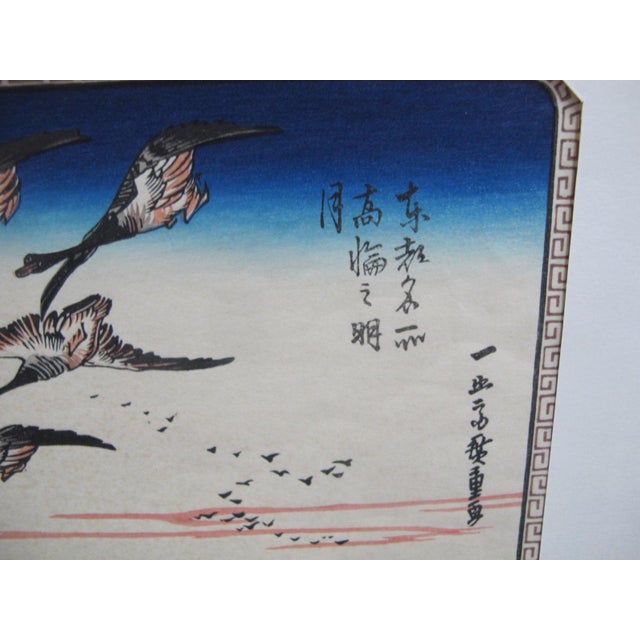 東都名所
高輪之明
月
一立斎広重画